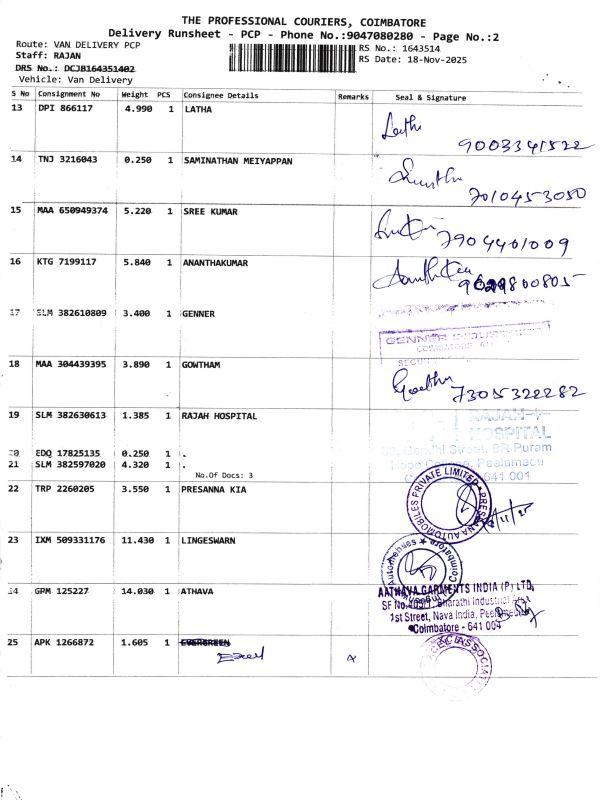 THE PROFESSIONAL COURIERS, COIMBATORE
Delivery Runsheet - PCP - Phone No.:9047080280 - Page No.:2
Route: VAN DELIVERY PCP
RS No.: 1643514
Staff: RAJAN
RS Date: 18-Nov-2025
DRS No.: DCJB164351402
Vehicle: Van Delivery
S No Consignment No Weight PCS Consignee Details Remarks Seal & Signature
13 DPI 866117 4.990 1 LATHA
9003341522
14 TNJ 3216043 0.250 1 SAMINATHAN MEIYAPPAN
7010453050
15 MAA 650949374 5.220 1 SREE KUMAR
7904401009
16 KTG 7199117 5.840 1 ANANTHAKUMAR
17 SLM 382610809 3.400 1 GENNER
GENNER
COIMBATORE
18 MAA 304439395 3.890 1 GOWTHAM
7305322282
19 SLM 382630613 1.385 1 RAJAH HOSPITAL
RAJAH
HOSPITAL
Gandhi Street, BR Puram
Peelamedu
641 001
20 EDQ 17825135 0.250 1 .
21 SLM 382597020 4.320 1 .
No.Of Docs: 3
22 TRP 2260205 3.550 1 PRESANNA KIA
AUTOMOBILES PRIVATE LIMITED
23 IXM 509331176 11.430 1 LINGESWARN
Automobiles Coimbatore
24 GPM 125227 14.030 1 ATHAVA
AATHAVA GARMENTS INDIA (P) LTD,
SF No. Bharathi Industrial
1st Street, Nava India,
Coimbatore - 641 004
25 APK 1266872 1.605 1 EVERGREEN
Excel
x